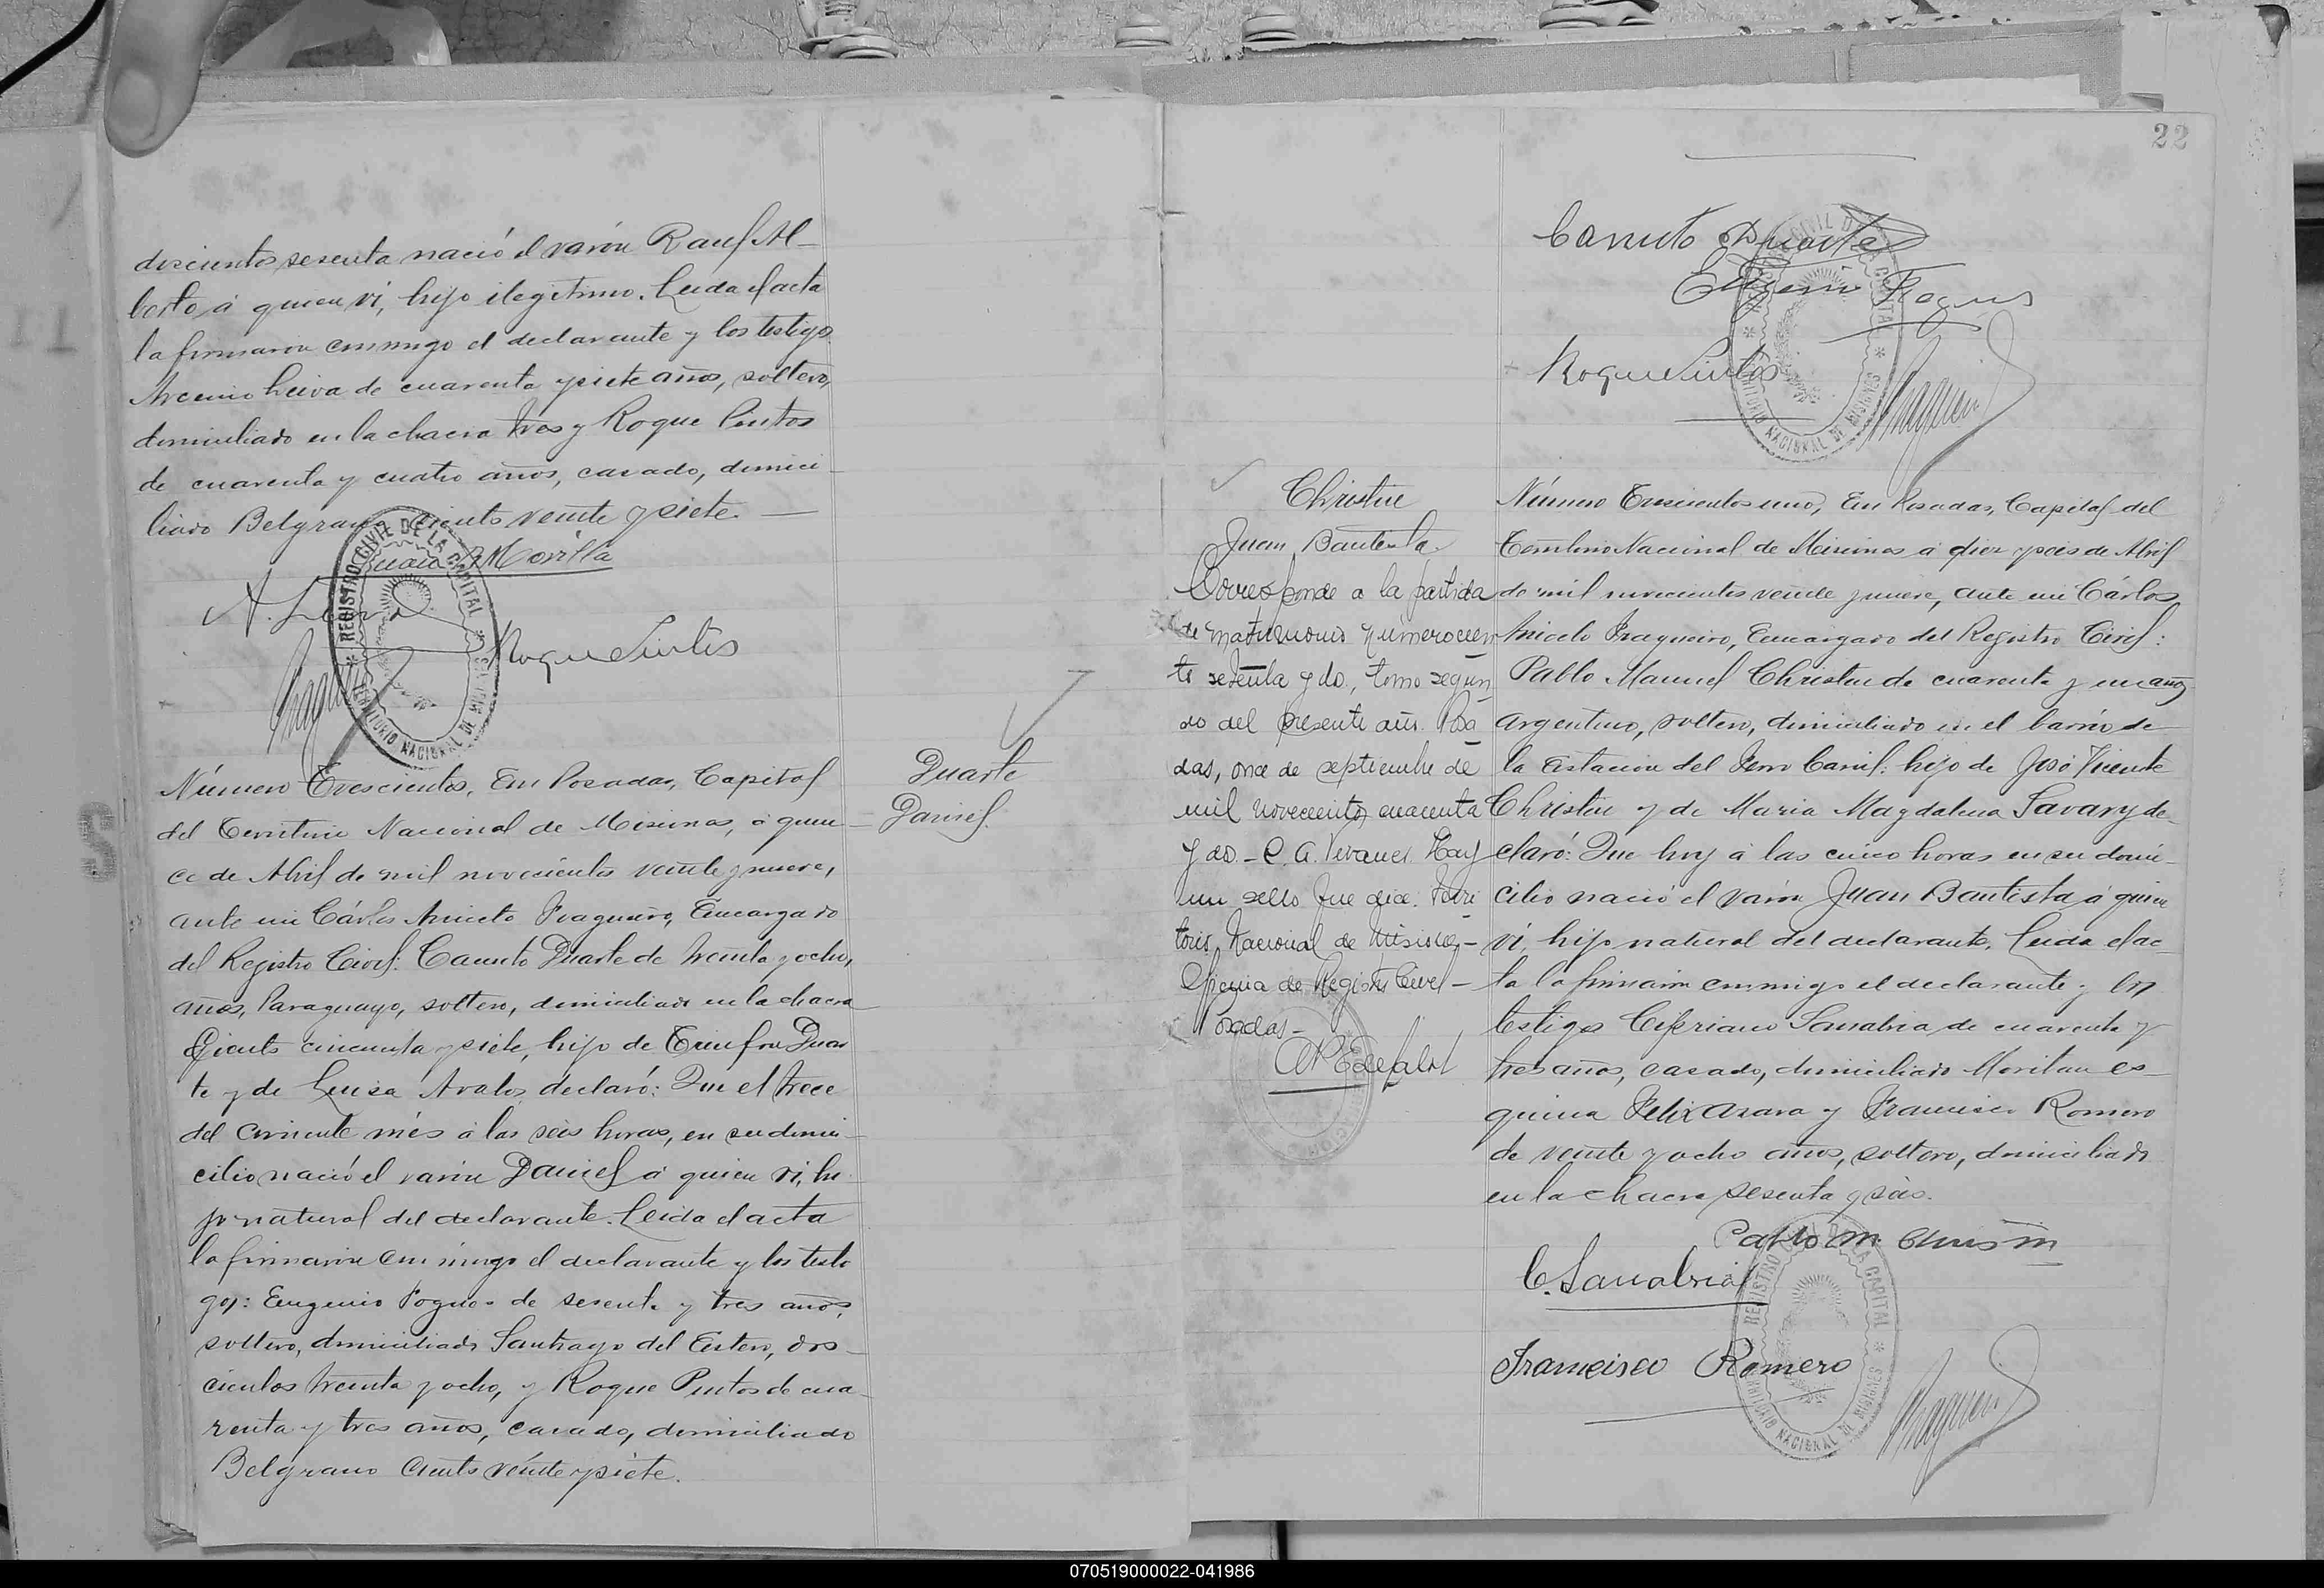 doscientos sesenta nació el varón Raul Al-
berto á quien ví, hijo ilegítimo. Leida el acta
la firmaron conmigo el declarante y los testigos
Arsenio Leiva de cuarenta y siete años, soltero,
domiciliado en la chacra tres y Roque Pintos
de cuarenta y cuatro años, casado, domici-
liado Belgrano ciento veinte y siete. —
Morilla
A. Leiva
REGISTRO CIVIL DE LA CAPITAL
TERRITORIO NACIONAL DE MISIONES
Roque Pintos
Número Trescientos, En Posadas, Capital
del Territorio Nacional de Misiones, á quin-
ce de Abril de mil novecientos veinte y nueve,
ante mi Cárlos Aniceto Fragueiro, Encargado
del Registro Civil: Canuto Duarte de treinta y ocho,
años, Paraguayo, soltero, domiciliado en la chacra
Ciento cincuenta y siete, hijo de Duar
te y de Luisa Avalos, declaró: Que el trece
del corriente més á las seis horas, en su domi-
cilio nació el varón Daniel á quien ví, hi-
jo natural del declarante. Leida el acta
la firmaron conmigo el declarante y los testi
gos: Eugenio de sesenta y tres años,
soltero, domiciliado Santiago del Estero, dos-
cientos treinta y ocho, y Roque Pintos de cua-
renta y tres años, casado, domiciliado
Belgrano ciento veinte y siete.
Duarte
Daniel.
22
Canuto Duarte
Roque Pintos
REGISTRO CIVIL DE LA CAPITAL
TERRITORIO NACIONAL DE MISIONES
Christie
Juan Bautista
Corresponde a la partida
de matrimonio numero cien
to setenta y do, tomo segun
do del presente año. Posa
das, once de septiembre de
mil novecientos cuarenta
y do. - C. A. Hay
un sello que dice: Terri
torio Nacional de Misiones -
Oficina de Registro Civil -
Posadas -
Número Trescientos uno, En Posadas, Capital del
Territorio Nacional de Misiones á diez y seis de Abril
de mil novecientos veinte y nueve, ante mi Cárlos
Aniceto Fragueiro, Encargado del Registro Civil:
Pablo Manuel Christie de cuarenta y un años
argentino, soltero, domiciliado en el barrio de
la Estacion del Ferro Carril: hijo de José Vicente
Christie y de Maria Magdalena Savary de-
claró: Que hoy á las cinco horas en su domi-
cilio nació el varón Juan Bautista á quien
ví, hijo natural del declarante. Leida el ac-
ta la firmaron conmigo el declarante y los
testigos Cipriano Sanabria de cuarenta y
tres años, casado, domiciliado es-
quina Felix Azara y Francisco Romero
de veinte y ocho años, soltero, domiciliado
en la chacra sesenta y seis.
Pablo M. Christie
C. Sanabria
Francisco Romero
REGISTRO CIVIL DE LA CAPITAL
TERRITORIO NACIONAL DE MISIONES
070519000022-041986